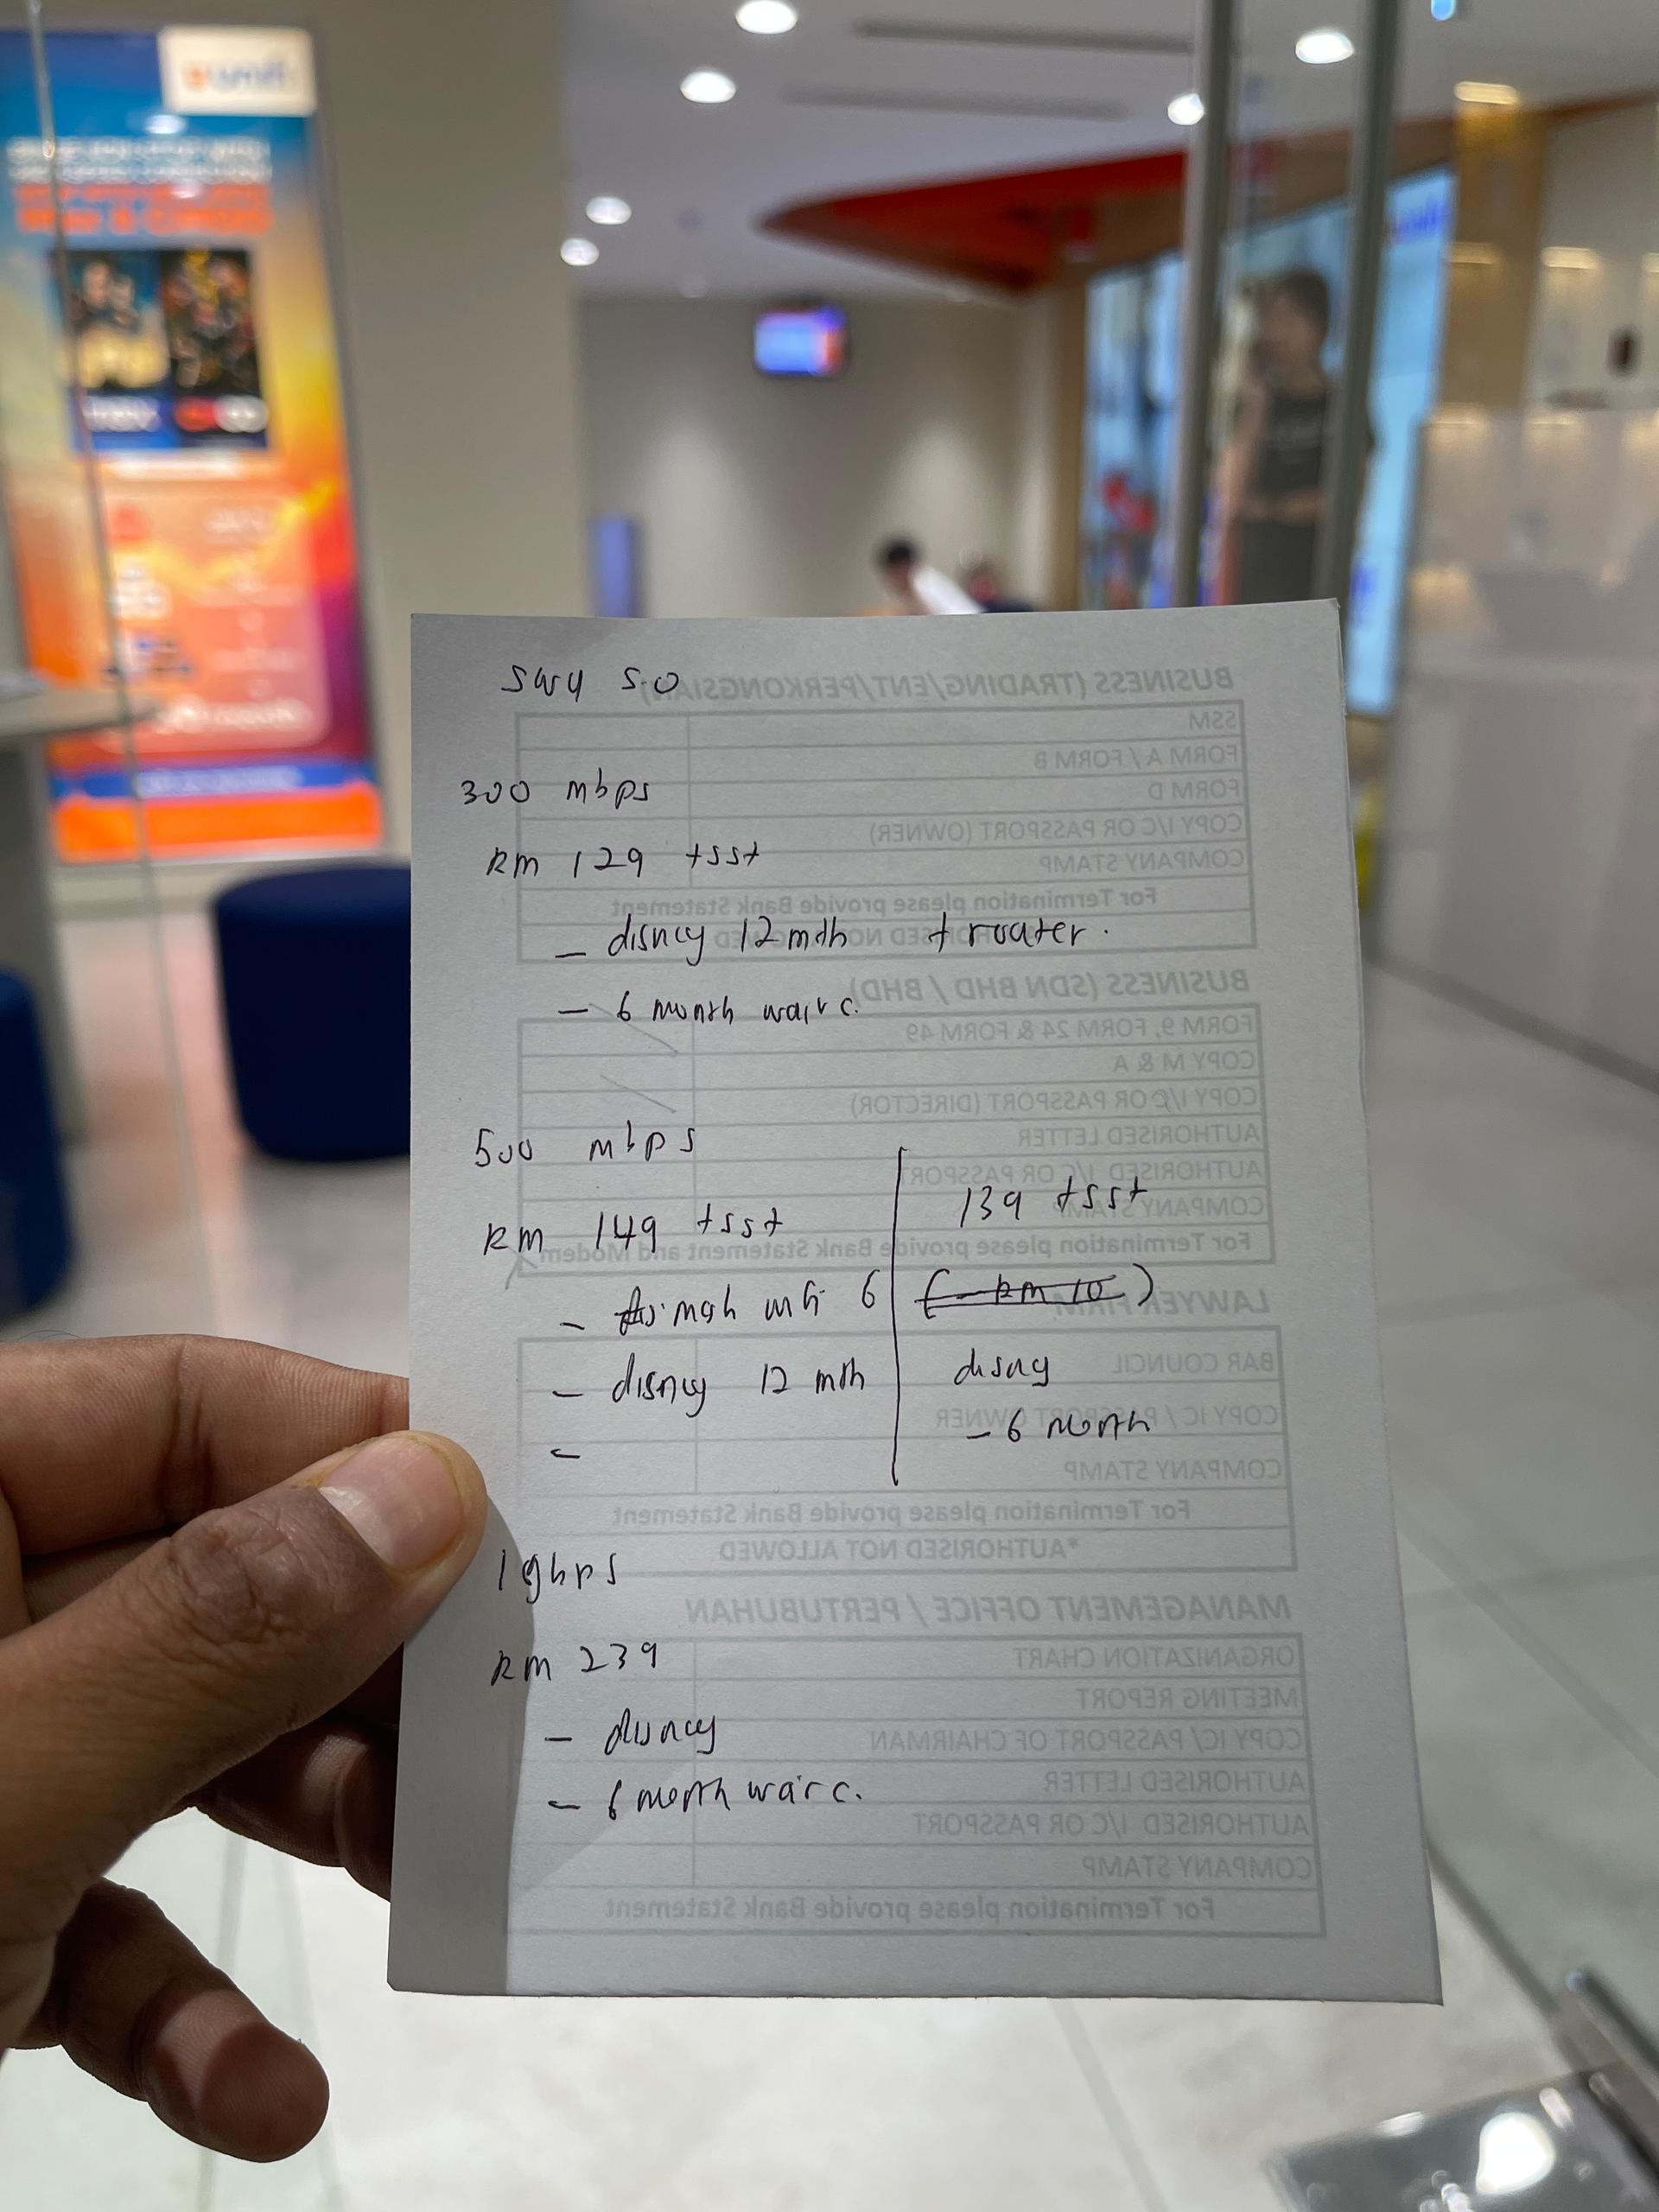 unifi
swy 5.0
300 mbps
RM 129 +sst
– disney 12 mth + router.
– 6 month waive.
500 mbps
RM 149 +sst
6
– disney 12 mth
–
139 +sst
(– RM 10)
disney
– 6 month
1 gbps
RM 239
– disney
– 6 month waive.
BUSINESS (TRADING/ENT/PERKONGSIAN)
SSM
FORM A / FORM B
FORM D
COPY I/C OR PASSPORT (OWNER)
COMPANY STAMP
For Termination please provide Bank Statement
BUSINESS (SDN BHD / BHD)
FORM 9, FORM 24 & FORM 49
COPY M & A
COPY I/C OR PASSPORT (DIRECTOR)
AUTHORISED LETTER
AUTHORISED I/C OR PASSPORT
COMPANY STAMP
For Termination please provide Bank Statement and Modem
LAWYER FIRM
BAR COUNCIL
COPY IC / PASSPORT OWNER
COMPANY STAMP
For Termination please provide Bank Statement
*AUTHORISED NOT ALLOWED
MANAGEMENT OFFICE / PERTUBUHAN
ORGANIZATION CHART
MEETING REPORT
COPY IC/ PASSPORT OF CHAIRMAN
AUTHORISED LETTER
AUTHORISED I/C OR PASSPORT
COMPANY STAMP
For Termination please provide Bank Statement